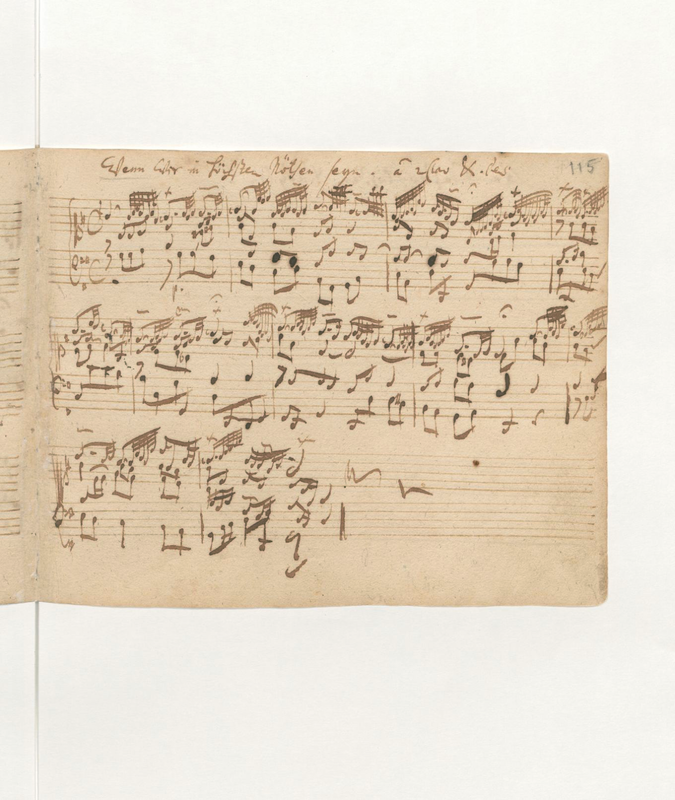 Wenn Wir in höchsten Nöthen seyn. â 2 Clav & Ped.
115